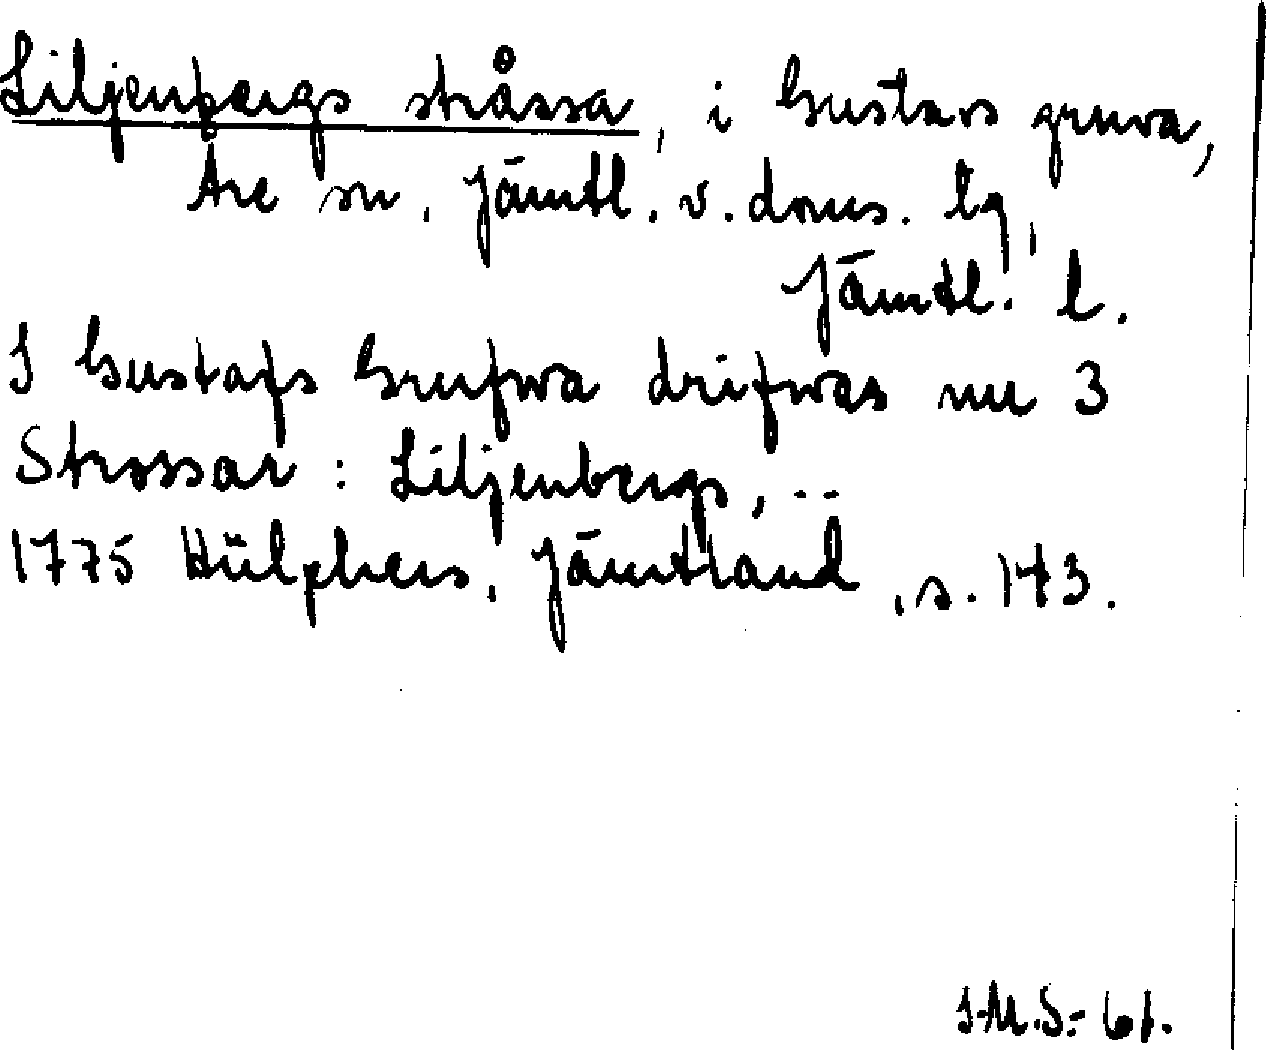 Liljenbergs stråssa, i Gustavs gruva,
Åre sn, Jämtl. v. doms. lg,
Jämtl. l.
I Gustafs Grufwa drifwas nu 3
Strossar: Liljenbergs, --
1775 Hülphers, Jämtland, s. 143.
I-M.S.- 61.